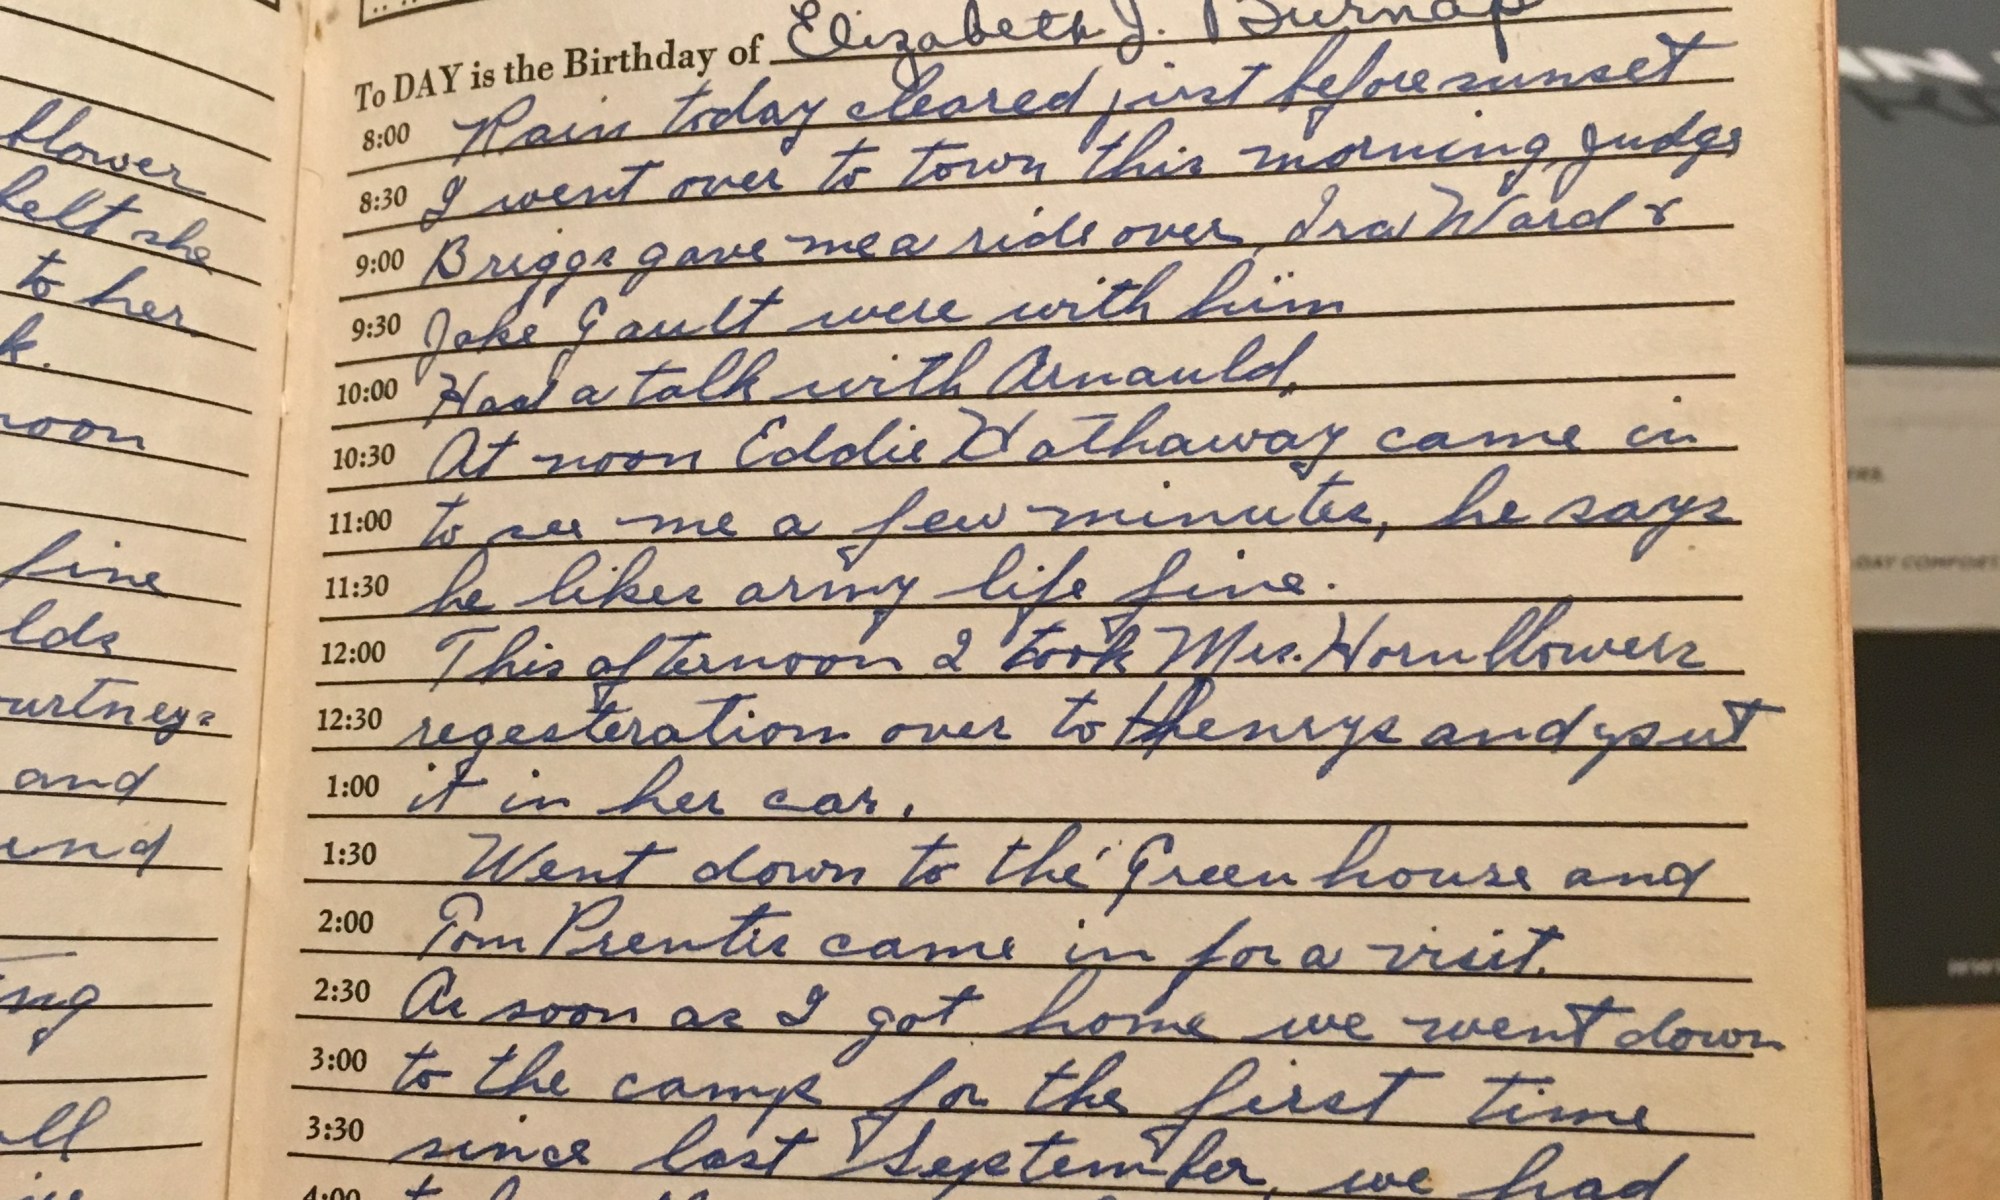 To DAY is the Birthday of Elizabeth J. Burnap
8:00 Rain today cleared just before sunset
8:30 I went over to town this morning, Judge
9:00 Briggs gave me a ride over, Ira Ward &
9:30 Jake Gault were with him
10:00 Had a talk with Arnauld.
10:30 At noon Eddie Hathaway came in
11:00 to see me a few minutes, he says
11:30 he likes army life fine.
12:00 This afternoon I took Mrs. Hornblowers
12:30 regesteration over to Henrys and put
1:00 it in her car.
1:30 Went down to the Greenhouse and
2:00 Tom Prentis came in for a visit.
2:30 As soon as I got home we went down
3:00 to the camp for the first time
3:30 since last September, we had
4:00
blower
felt she
to her
k.
noon
fine
lds
urtneys
and
end
ing
all